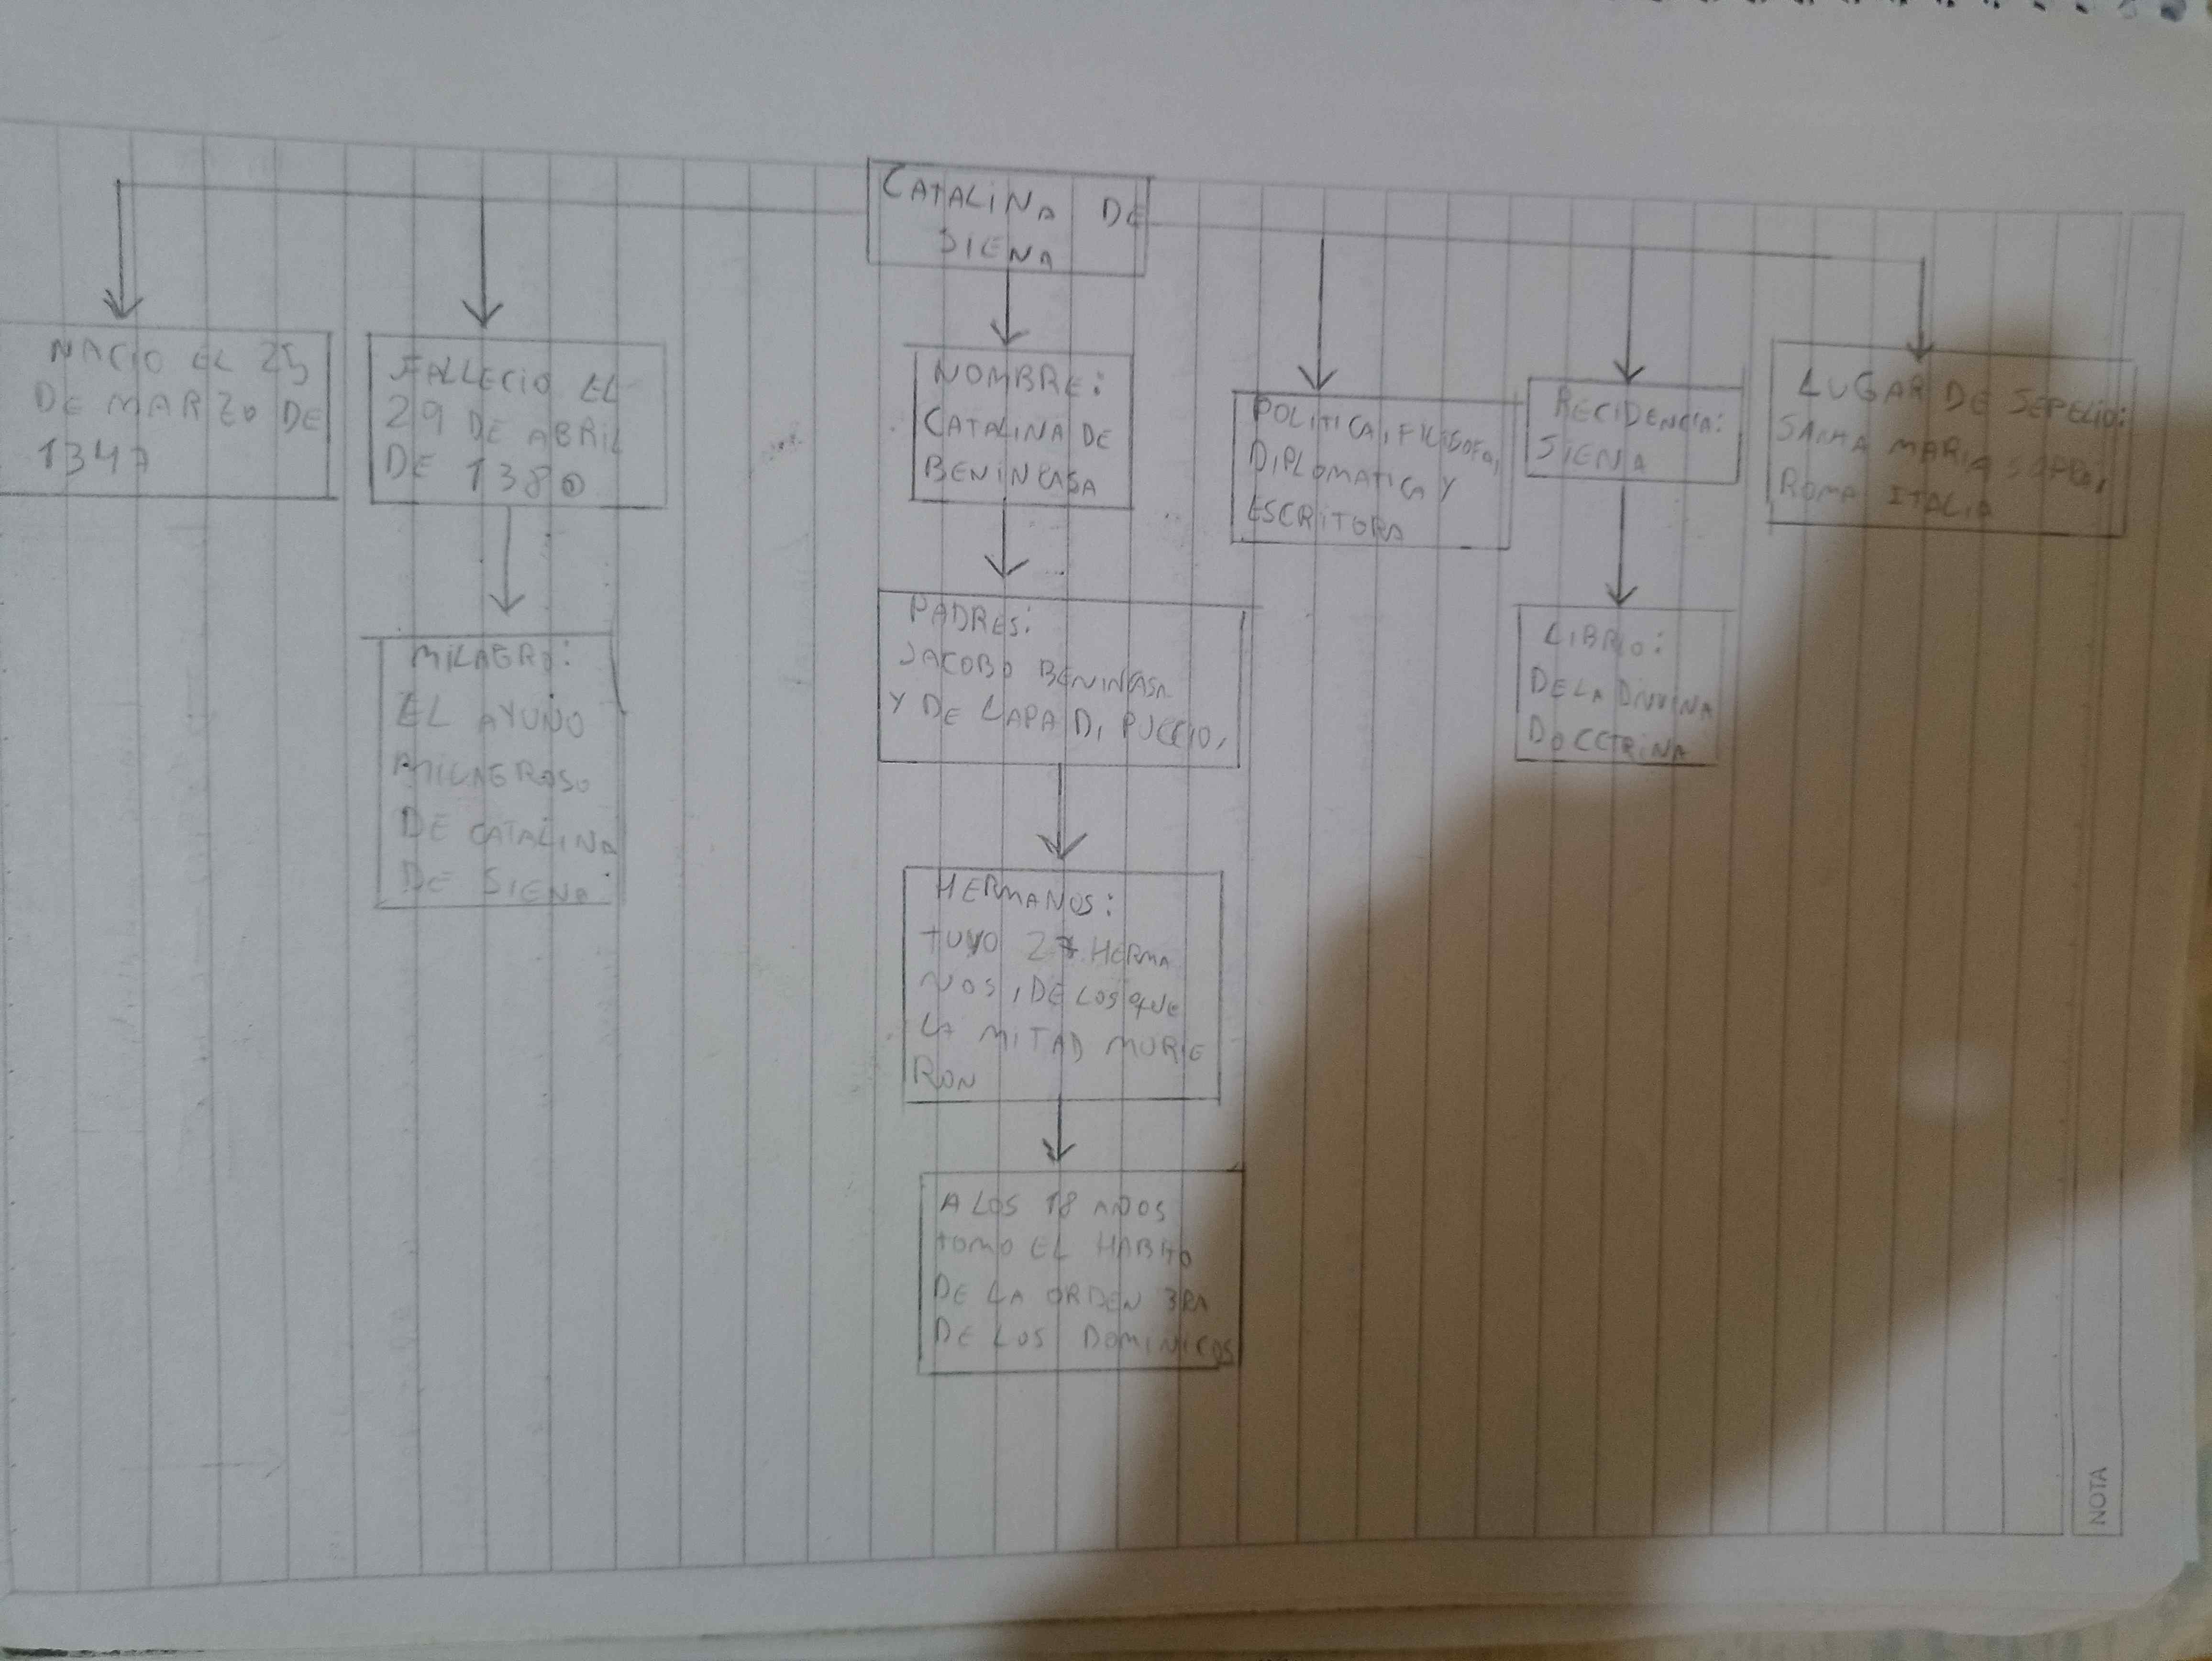 CATALINA DE
SIENA
NACIO EL 25
DE MARZO DE
1347
FALLECIO EL
29 DE ABRIL
DE 1380
MILAGRO:
EL AYUNO
MILAGROSO
DE CATALINA
DE SIENA
NOMBRE:
CATALINA DE
BENINCASA
PADRES:
JACOBO BENINCASA
Y DE LAPA DI PUCCIO,
HERMANOS:
TUVO 27 HERMA
NOS, DE LOS QUE
LA MITAD MURIE
RON
A LOS 18 AÑOS
TOMO EL HABITO
DE LA ORDEN 3RA
DE LOS DOMINICOS
POLITICA, FILISOFA,
DIPLOMATICA Y
ESCRITORA
RECIDENCIA:
SIENA
LIBRIO:
DE LA DIVINA
DOCCTRINA
LUGAR DE SEPELIO:
SANTA MARIA SOPRO,
ROMA ITALIA
NOTA